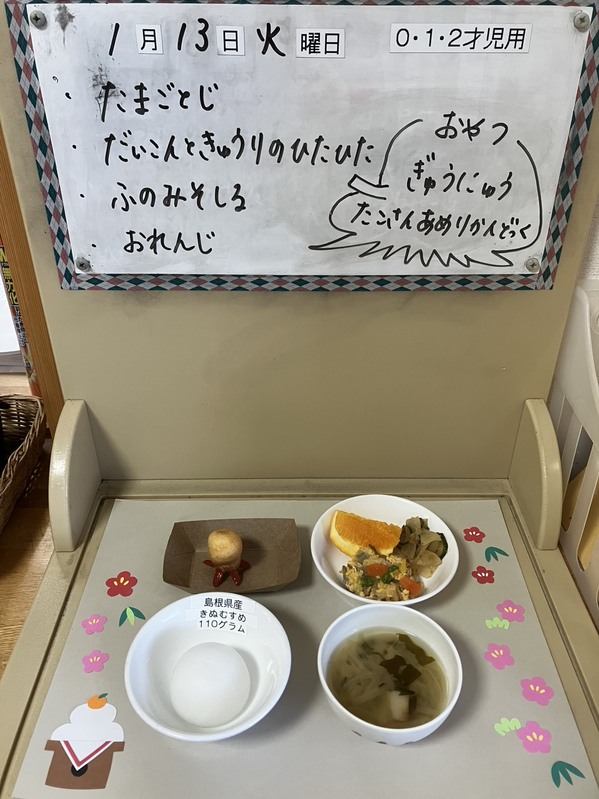 1月13日 火曜日 0・1・2才児用
・たまごとじ
・だいこんときゅうりのひたひた
・ふのみそしる
・おれんじ
おやつ
ぎゅうにゅう
たんさんあめりかんどっく
島根県産
きぬむすめ
110グラム